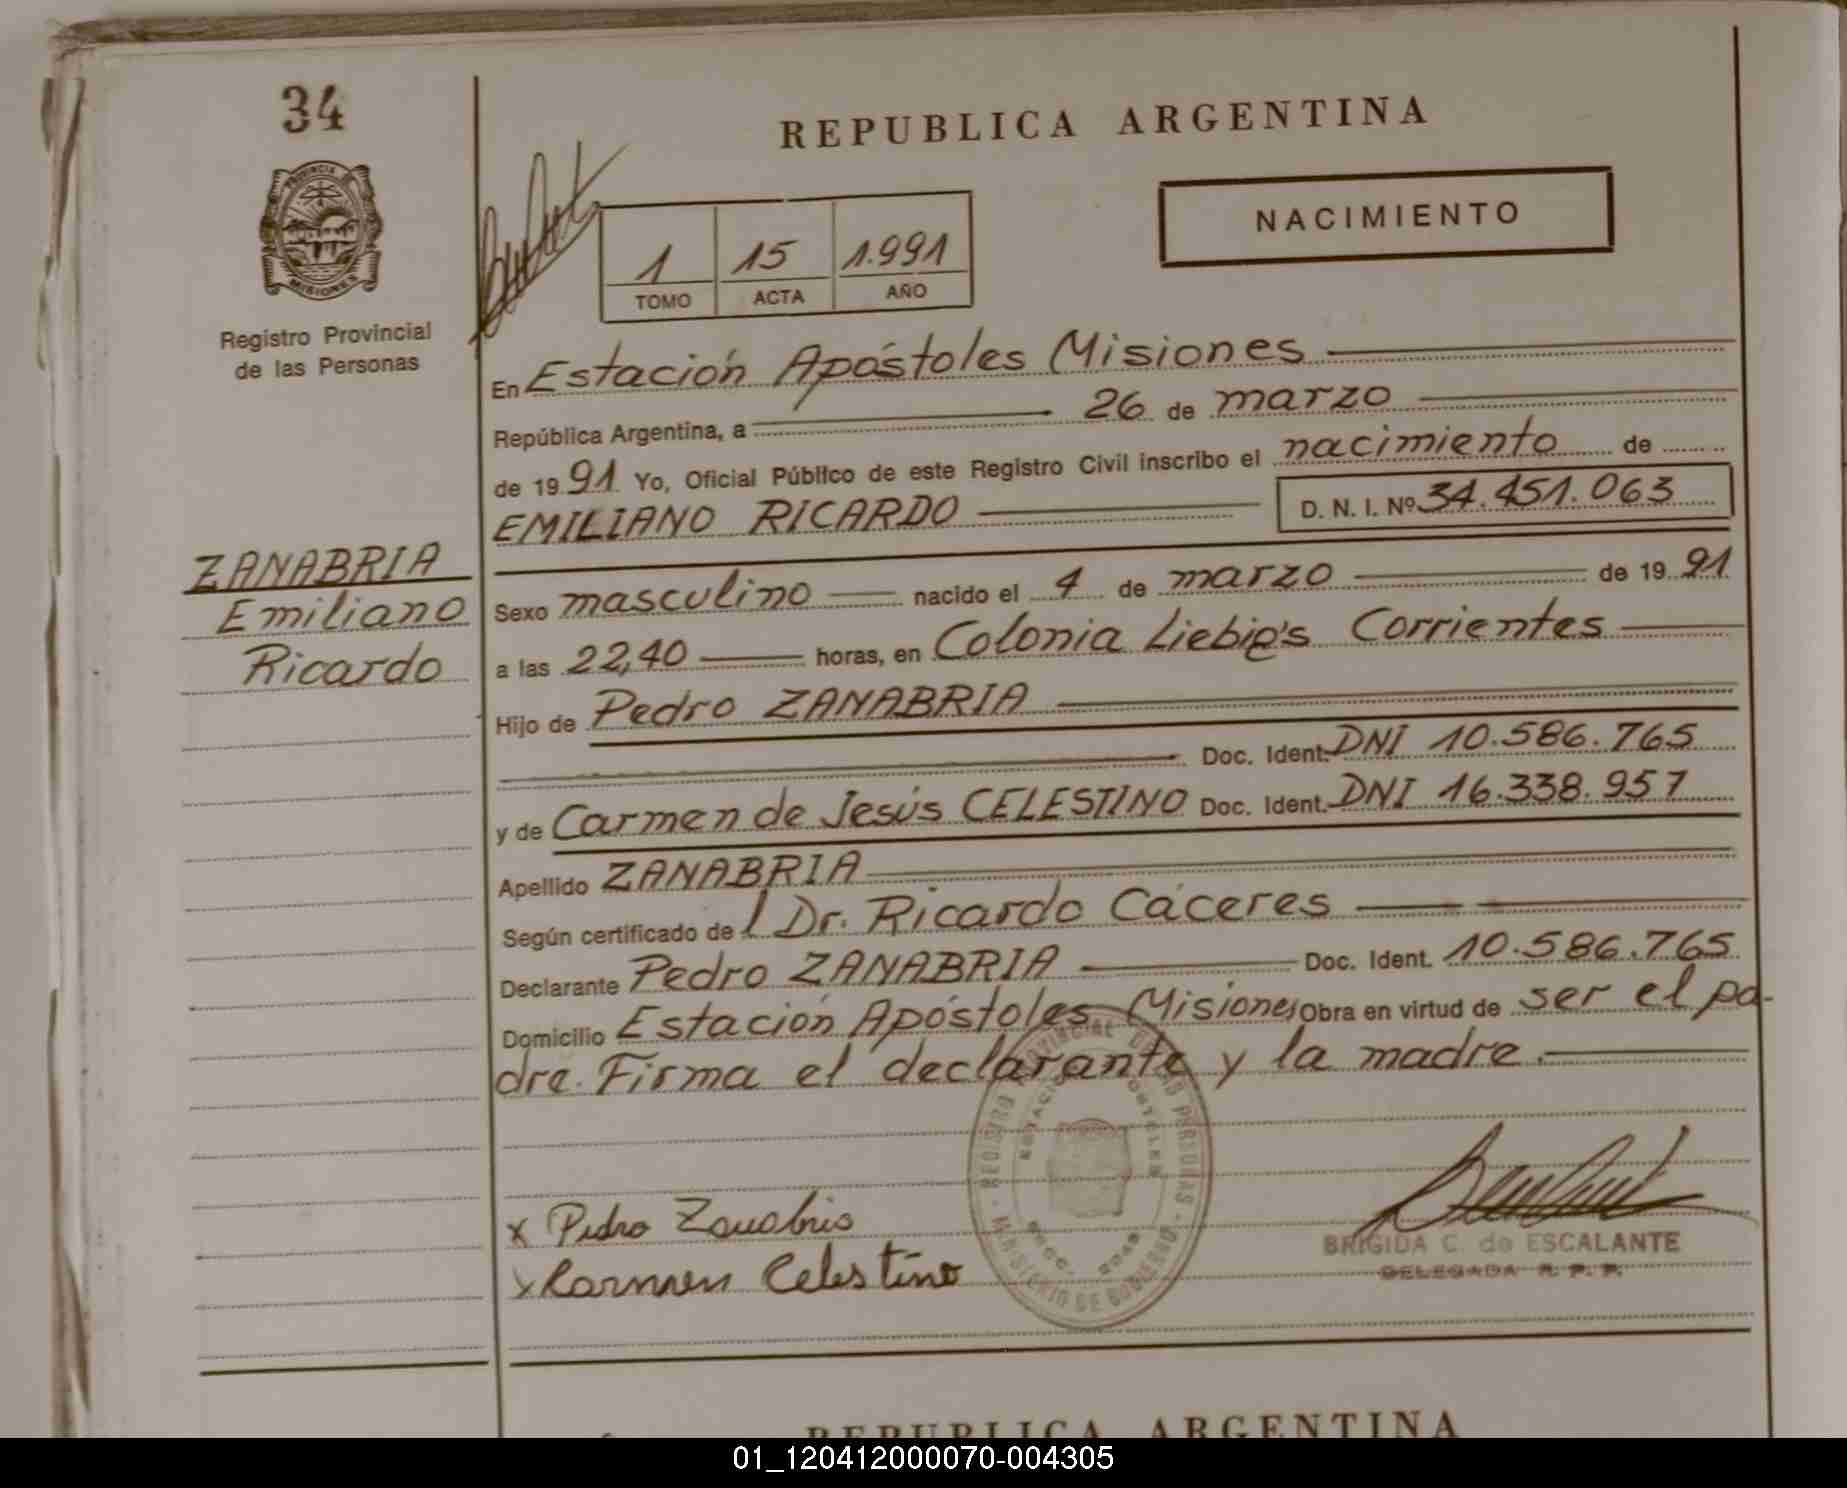 34
PROVINCIA
MISIONES
Registro Provincial
de las Personas
REPUBLICA ARGENTINA
NACIMIENTO
1 15 1.991
TOMO ACTA AÑO
En Estación Apóstoles Misiones
República Argentina, a 26 de marzo
de 1991 Yo, Oficial Público de este Registro Civil inscribo el nacimiento de
EMILIANO RICARDO D. N. I. Nº 34.451.063
ZANABRIA
Emiliano
Ricardo
Sexo masculino nacido el 4 de marzo de 1991
a las 22,40 horas, en Colonia Liebig's Corrientes
Hijo de Pedro ZANABRIA
Doc. Ident. DNI 10.586.765
y de Carmen de Jesús CELESTINO Doc. Ident. DNI 16.338.957
Apellido ZANABRIA
Según certificado del Dr. Ricardo Cáceres
Declarante Pedro ZANABRIA Doc. Ident. 10.586.765
Domicilio Estación Apóstoles Misiones Obra en virtud de ser el pa-
dre. Firma el declarante y la madre.
x Pedro Zanabria
x Carmen Celestino
BRIGIDA C. de ESCALANTE
DELEGADA R. P. P.
REPUBLICA ARGENTINA
01_120412000070-004305